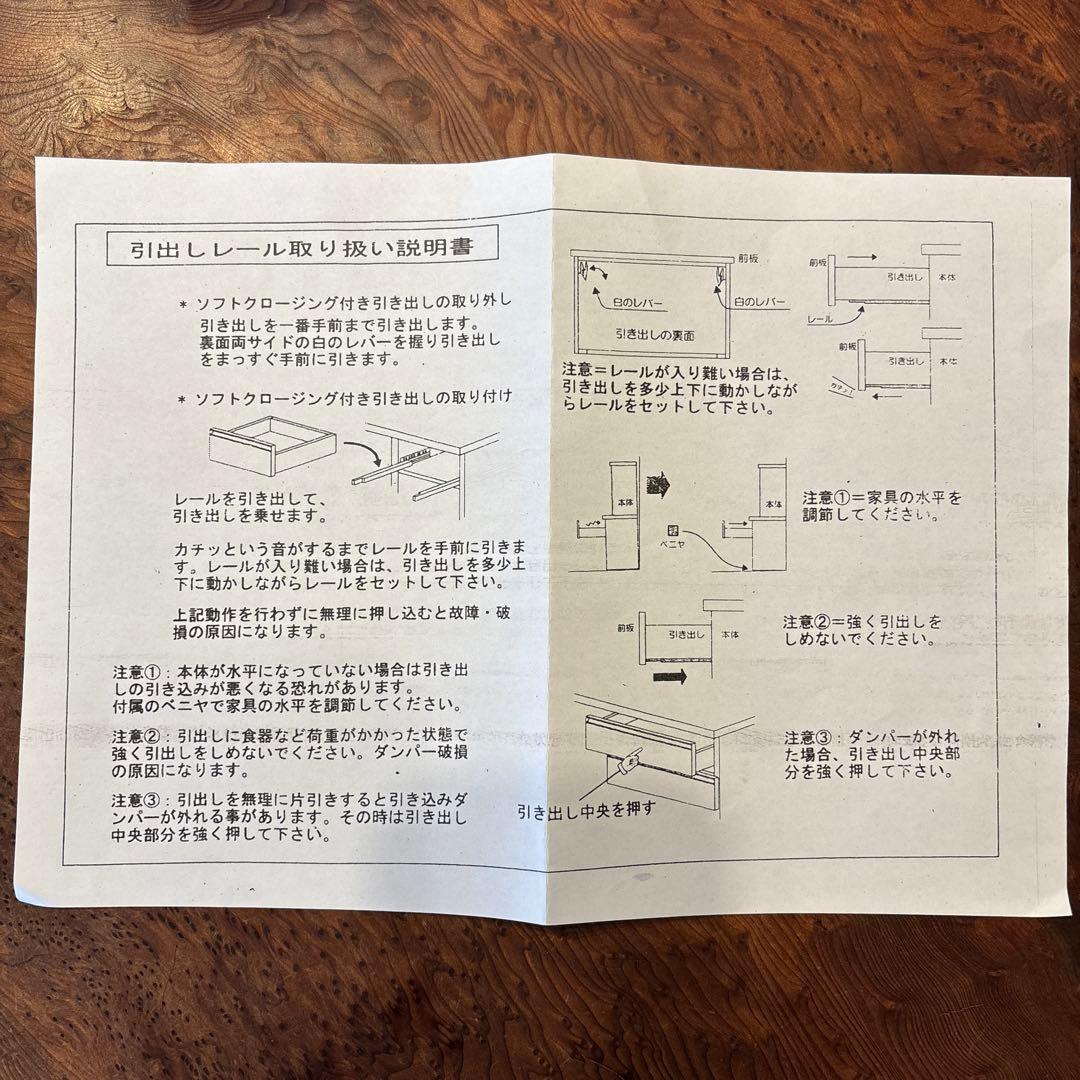 引出しレール取り扱い説明書
* ソフトクロージング付き引き出しの取り外し
引き出しを一番手前まで引き出します。
裏面両サイドの白のレバーを握り引き出し
をまっすぐ手前に引きます。
* ソフトクロージング付き引き出しの取り付け
レールを引き出して、
引き出しを乗せます。
カチッという音がするまでレールを手前に引きま
す。レールが入り難い場合は、引き出しを多少上
下に動かしながらレールをセットして下さい。
上記動作を行わずに無理に押し込むと故障・破
損の原因になります。
注意①：本体が水平になっていない場合は引き出
しの引き込みが悪くなる恐れがあります。
付属のベニヤで家具の水平を調節してください。
注意②：引出しに食器など荷重がかかった状態で
強く引出しをしめないでください。ダンパー破損
の原因になります。
注意③：引出しを無理に片引きすると引き込みダ
ンパーが外れる事があります。その時は引き出し
中央部分を強く押して下さい。
前板
白のレバー
白のレバー
引き出しの裏面
前板
引き出し
本体
レール
前板
引き出し
本体
カチッ！
注意＝レールが入り難い場合は、
引き出しを多少上下に動かしなが
らレールをセットして下さい。
本体
ベニヤ
本体
注意①＝家具の水平を
調節してください。
前板
引き出し
本体
注意②＝強く引出しを
しめないでください。
引き出し中央を押す
注意③：ダンパーが外れ
た場合、引き出し中央部
分を強く押して下さい。